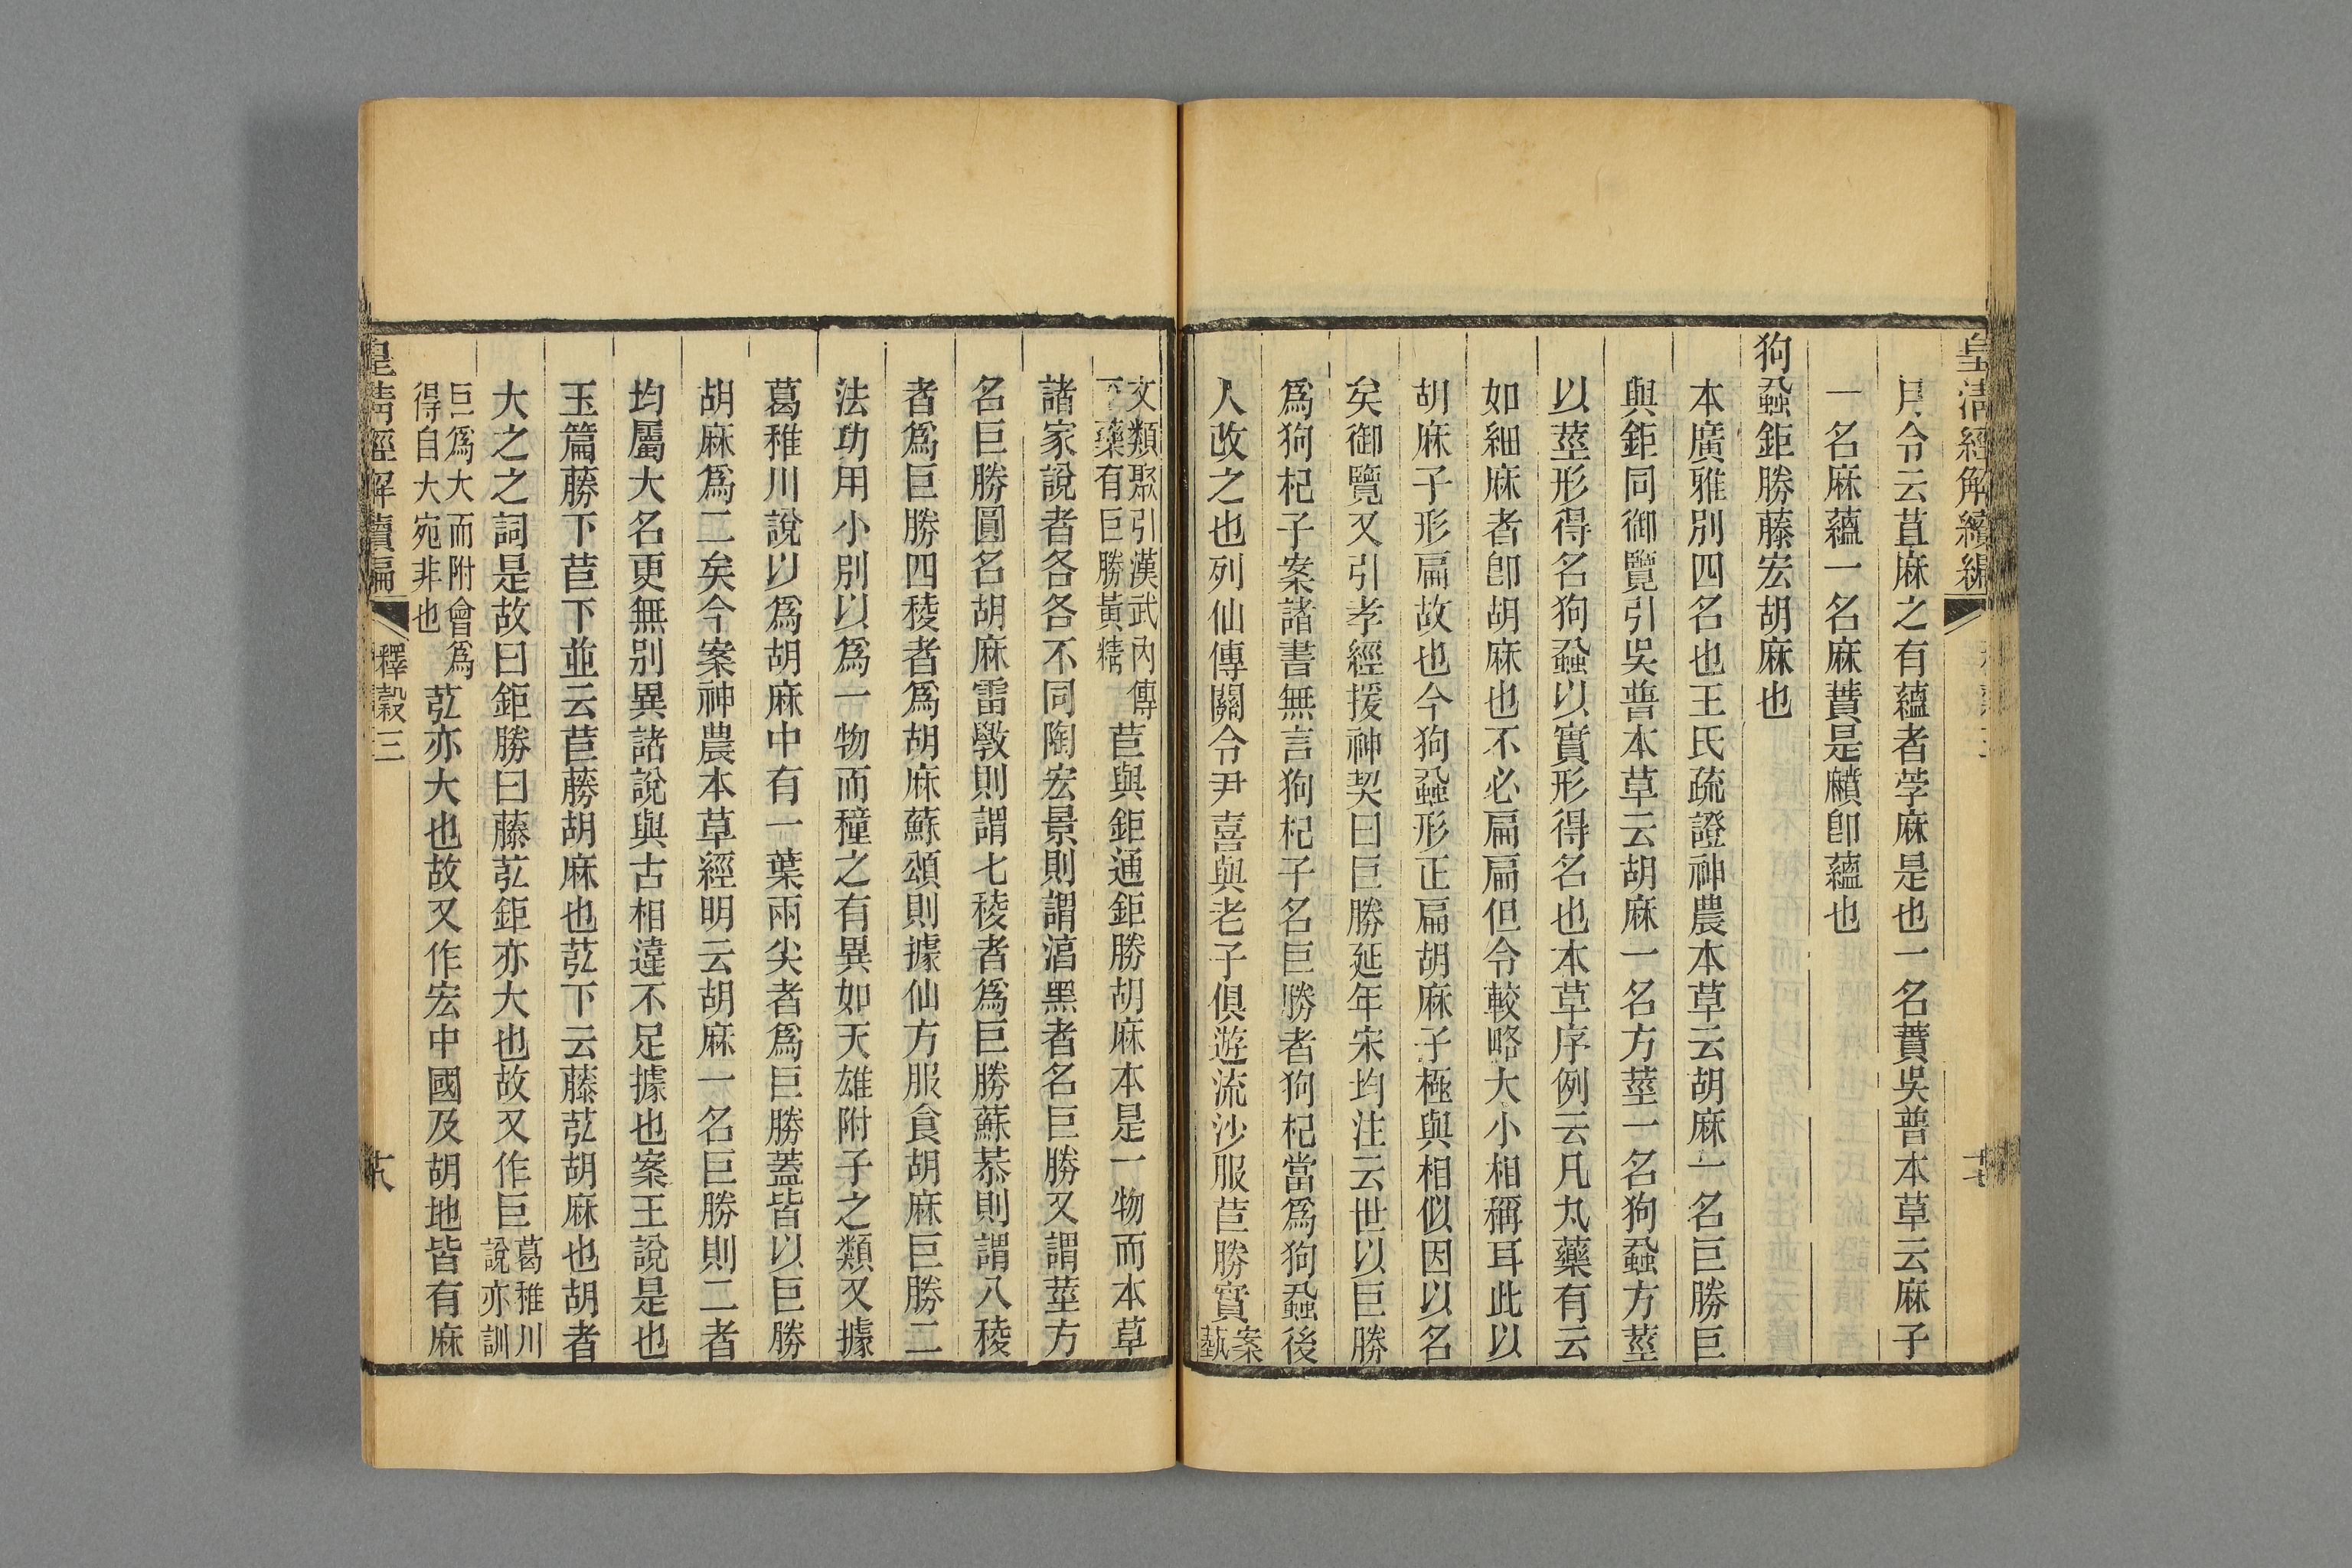 皇清經解續編
月令云苴麻之有蘊者荸麻是也一名蕡吳普本草云麻子
一名麻蘊一名麻蕡是黂卽蘊也
狗蝨鉅勝藤宏胡麻也
本廣雅別四名也王氏疏證神農本草云胡麻一名巨勝巨
與鉅同御覽引吳普本草云胡麻一名方莖一名狗蝨方莖
以莖形得名狗蝨以實形得名也本草序例云凡丸藥有云
如細麻者卽胡麻也不必扁扁但令較略大小相稱耳此以
胡麻子形扁故也今狗蝨形正扁胡麻子極與相似因以名
矣御覽又引孝經援神契曰巨勝延年宋均注云世以巨勝
爲狗杞子案諸書無言狗杞子名巨勝者狗杞當爲狗蝨後
人改之也列仙傳關令尹喜與老子俱遊流沙服苣勝實案藝
文類聚引漢武內傳下藥有巨勝黃精苣與鉅通鉅勝胡麻本是一物而本草
諸家說者各各不同陶宏景則謂湻黑者名巨勝又謂莖方
名巨勝圓名胡麻雷斆則謂七稜者爲巨勝蘇恭則謂八稜
者爲巨勝四稜者爲胡麻蘇頌則據仙方服食胡麻巨勝二
法功用小別以爲一物而穜之有異如天雄附子之類又據
葛稚川說以爲胡麻中有一葉兩尖者爲巨勝蓋皆以巨勝
胡麻爲二矣今案神農本草經明云胡麻一名巨勝則二者
均屬大名更無別異諸說與古相違不足據也案王說是也
玉篇藤下苣下並云苣藤胡麻也苰下云藤苰胡麻也胡者
大之之詞是故曰鉅勝曰藤苰鉅亦大也故又作巨葛稚川說亦訓
巨爲大而附會爲得自大宛非也苰亦大也故又作宏中國及胡地皆有麻
皇清經解續編
釋穀三
六